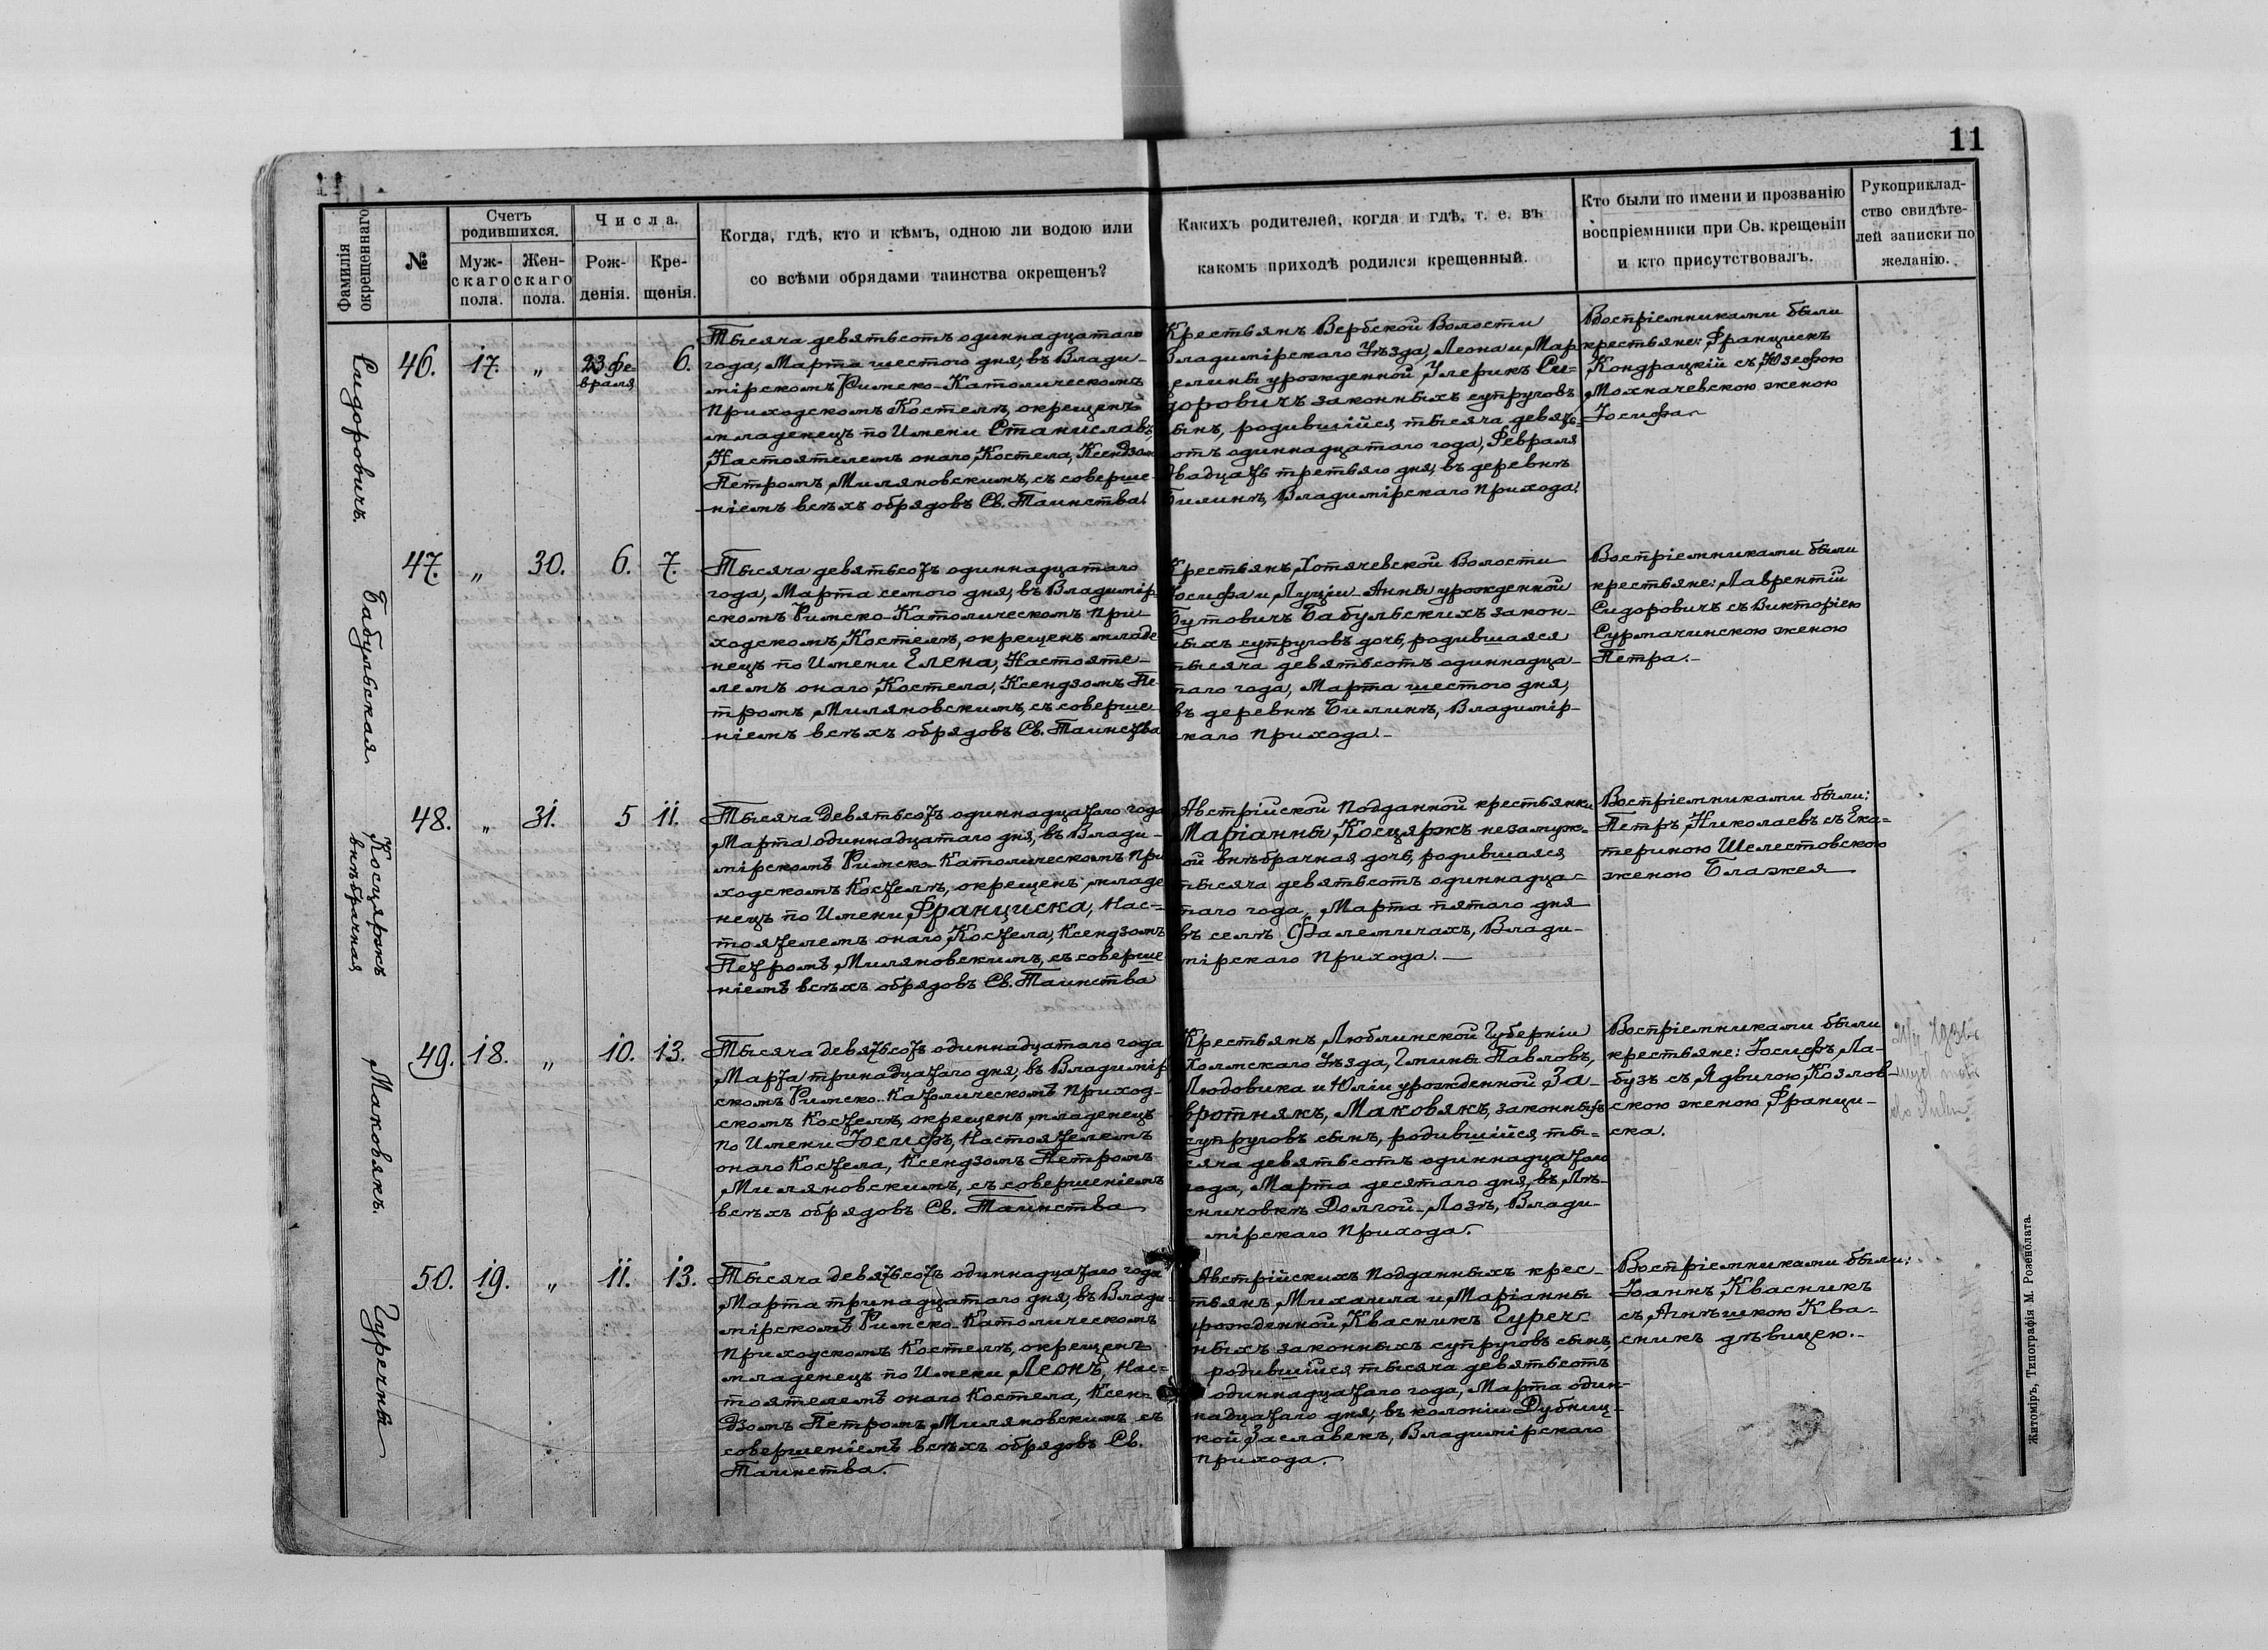 11
11
Фамилія
окрещеннаго
№
Счетъ
родившихся.
Муж-
скаго
пола.
Жен-
скаго
пола.
Числа.
Рож-
денія.
Кре-
щенія.
Когда, гдѣ, кто и кѣмъ, одною ли водою или
со всѣми обрядами таинства окрещенъ?
Какихъ родителей, когда и гдѣ, т. е. въ
какомъ приходѣ родился крещенный.
Кто были по имени и прозванію
воспріемники при Св. крещеніи
и кто присутствовалъ.
Рукоприклад-
ство свидѣте-
лей записки по
желанію.
Сидоровичъ.
46.
17.
„
23 фе-
враля
6.
Тысяча девятьсотъ одиннадцатаго
года, Марта шестого дня, въ Влади-
мірскомъ Римско-Католическомъ
Приходскомъ Костелѣ, окрещенъ
младенецъ по Имени Станиславъ,
Настоятелемъ онаго Костела, Ксендзом
Петромъ Миляновскимъ, съ соверше-
ніемъ всѣхъ обрядовъ Св. Таинства.
Крестьянъ Вербской Волости
Владимірскаго Уѣзда, Леона и Мар
елины урожденной Улерикъ Си-
доровичъ законныхъ супруговъ
сынъ, родившійся тысяча девять-
сотъ одиннадцатаго года, Февраля
двадцать третьяго дня, въ деревнѣ
Билинѣ, Владимірскаго Прихода.
Воспріемниками были
крестьяне: Францискъ
Кондрацкій съ Юзефою
Мохначевскою женою
Іосифа
Бабульская
47.
„
30.
6.
7.
Тысяча девятьсотъ одиннадцатаго
года, Марта семого дня, въ Владимір
скомъ Римско-Католическомъ При-
ходскомъ Костелѣ, окрещенъ младе
нецъ по Имени Елена, Настояте-
лемъ онаго Костела, Ксендзомъ Пе-
тромъ Миляновскимъ, съ соверше-
ніемъ всѣхъ обрядовъ Св. Таинства
Крестьянъ Хотячевской Волости
Іосифа и Луціи-Анны урожденной
Бутовичъ Бабульскихъ закон-
ныхъ супруговъ дочь, родившаяся
тысяча девятьсотъ одиннадца-
таго года, Марта шестого дня,
въ деревнѣ Билинѣ, Владимір-
скаго Прихода.-
Воспріемниками были
крестьяне: Лаврентій
Сидоровичъ съ Викторіею
Сурмачинскою женою
Петра.-
Косцяржъ
внѣбрачная
48.
„
31.
5
11.
Тысяча девятьсотъ одиннадцатаго года
Марта одиннадцатаго дня, въ Влади-
мірскомъ Римско-Католическомъ При
ходскомъ Костелѣ, окрещенъ младе
нецъ по Имени Франциска, Нас-
тоятелемъ онаго Костела, Ксендзомъ
Петромъ Миляновскимъ, съ соверше
ніемъ всѣхъ обрядовъ Св. Таинства
Австрійской Подданной крестьянки
Маріанны Косцяржъ незамуж-
ной внѣбрачная дочь, родившаяся
тысяча девятьсотъ одиннадца-
таго года, Марта пятаго дня
въ селѣ Фалемичахъ, Влади-
мірскаго Прихода.-
Воспріемниками были:
Петръ Николаевъ съ Ека-
териною Шелестовскою
женою Блажея
Маковякъ.
49.
18.
„
10.
13.
Тысяча девятьсотъ одиннадцатаго года
Марта тринадцатаго дня, въ Владимір
скомъ Римско-Католическомъ Приход-
скомъ Костелѣ, окрещенъ младенецъ
по Имени Іосифъ, Настоятелемъ
онаго Костела, Ксендзомъ Петромъ
Миляновскимъ, съ совершеніемъ
всѣхъ обрядовъ Св. Таинства
Крестьянъ Люблинской Губерніи
Холмскаго Уѣзда, Гмины Павловъ,
Людовика и Юліи урожденной За-
вротнякъ, Маковякъ, законныхъ
супруговъ сынъ, родившійся ты-
сяча девятьсотъ одиннадцатаго
года, Марта десятаго дня, въ Лѣ-
сничовкѣ Долгой-Лозѣ, Влади-
мірскаго Прихода.
Воспріемниками были
крестьяне: Іосифъ Ла-
бузъ съ Ядвигою Козлов-
скою женою Франци-
ска.
Гуречны
50.
19.
„
11.
13.
Тысяча девятьсотъ одиннадцатаго года
Марта тринадцатаго дня, въ Влади-
мірскомъ Римско-Католическомъ
Приходскомъ Костелѣ, окрещенъ
младенецъ по Имени Леонъ, Нас-
тоятелемъ онаго Костела, Ксен-
дзомъ Петромъ Миляновскимъ съ
совершеніемъ всѣхъ обрядовъ Св.
Таинства.
Австрійскихъ Подданныхъ крес-
тьянъ Михаила и Маріанны
урожденной Квасникъ Гуреч-
ныхъ законныхъ супруговъ сынъ,
родившійся тысяча девятьсотъ
одиннадцатаго года, Марта один-
надцатаго дня, въ колоніи Дубниц-
кой Заславекъ, Владимірскаго
Прихода.
Воспріемниками были:
Іоаннъ Квасникъ
съ Агнѣшкою Ква-
сникъ дѣвицею.-
Житоміръ, Типографія М. Розенблата.